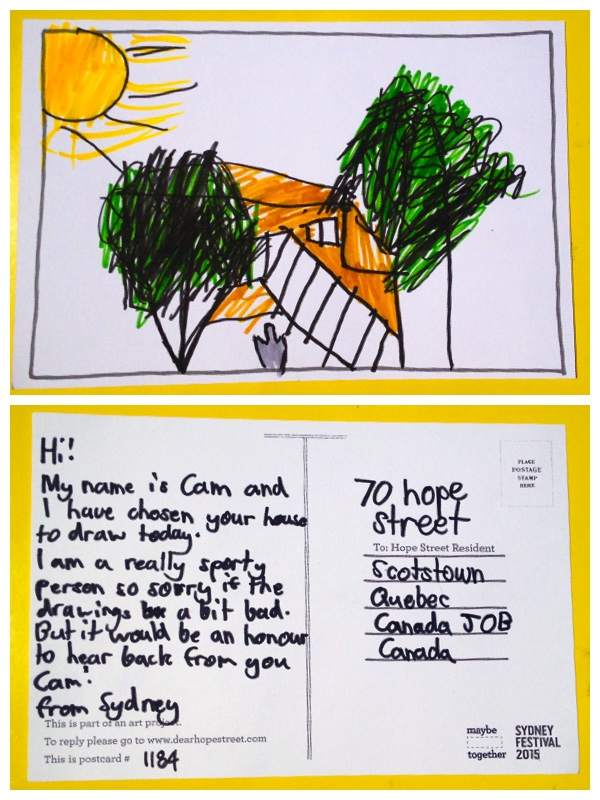 Hi!
My name is Cam and
I have chosen your house
to draw today.
I am a really sporty
person so sorry if the
drawings a bit bad.
But it would be an honour
to hear back from you
Cam!
from Sydney
This is part of an art project.
To reply please go to www.dearhopestreet.com
This is postcard # 1184
PLACE
POSTAGE
STAMP
HERE
70 hope
street
To: Hope Street Resident
Scotstown
Quebec
Canada JOB
Canada
maybe
together
SYDNEY
FESTIVAL
2015